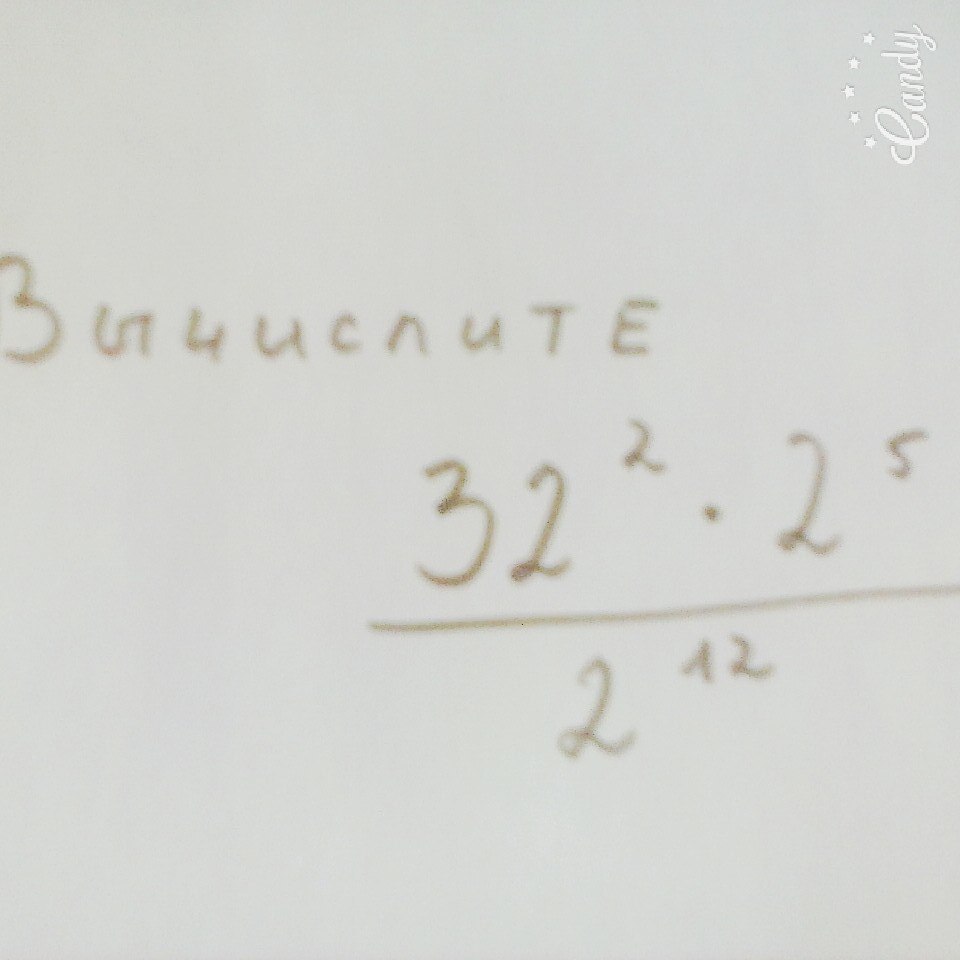 Candy
Вычислите
32² · 2⁵
2¹²